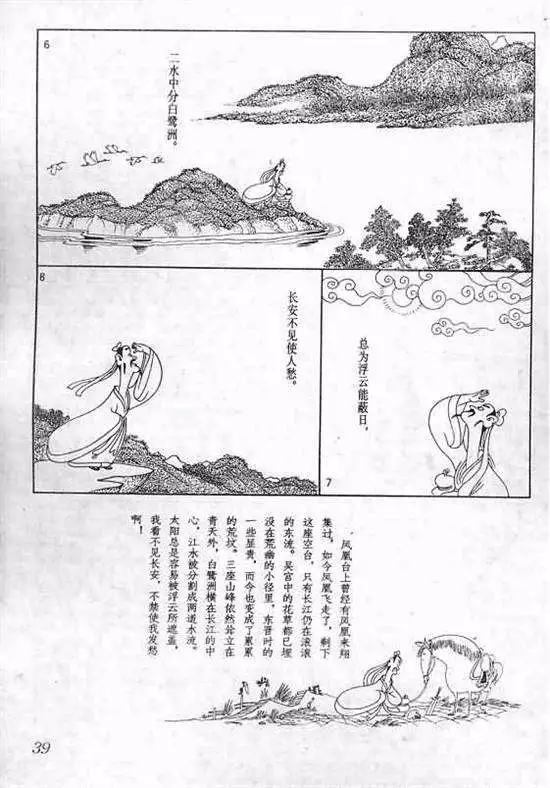 6
二水中分白鹭洲。
7
总为浮云能蔽日，
8
长安不见使人愁。
凤凰台上曾经有凤凰来翔
集过，如今凤凰飞走了，剩下
这座空台，只有长江仍在滚滚
的东流。吴宫中的花草都已埋
没在荒幽的小径里，东晋时的
一些显贵，而今也变成了累累
的荒坟。三座山峰依然耸立在
青天外，白鹭洲横在长江的中
心，江水被分割成两道水流。
太阳总是容易被浮云所遮盖，
我看不见长安，不禁使我发愁
啊！
39